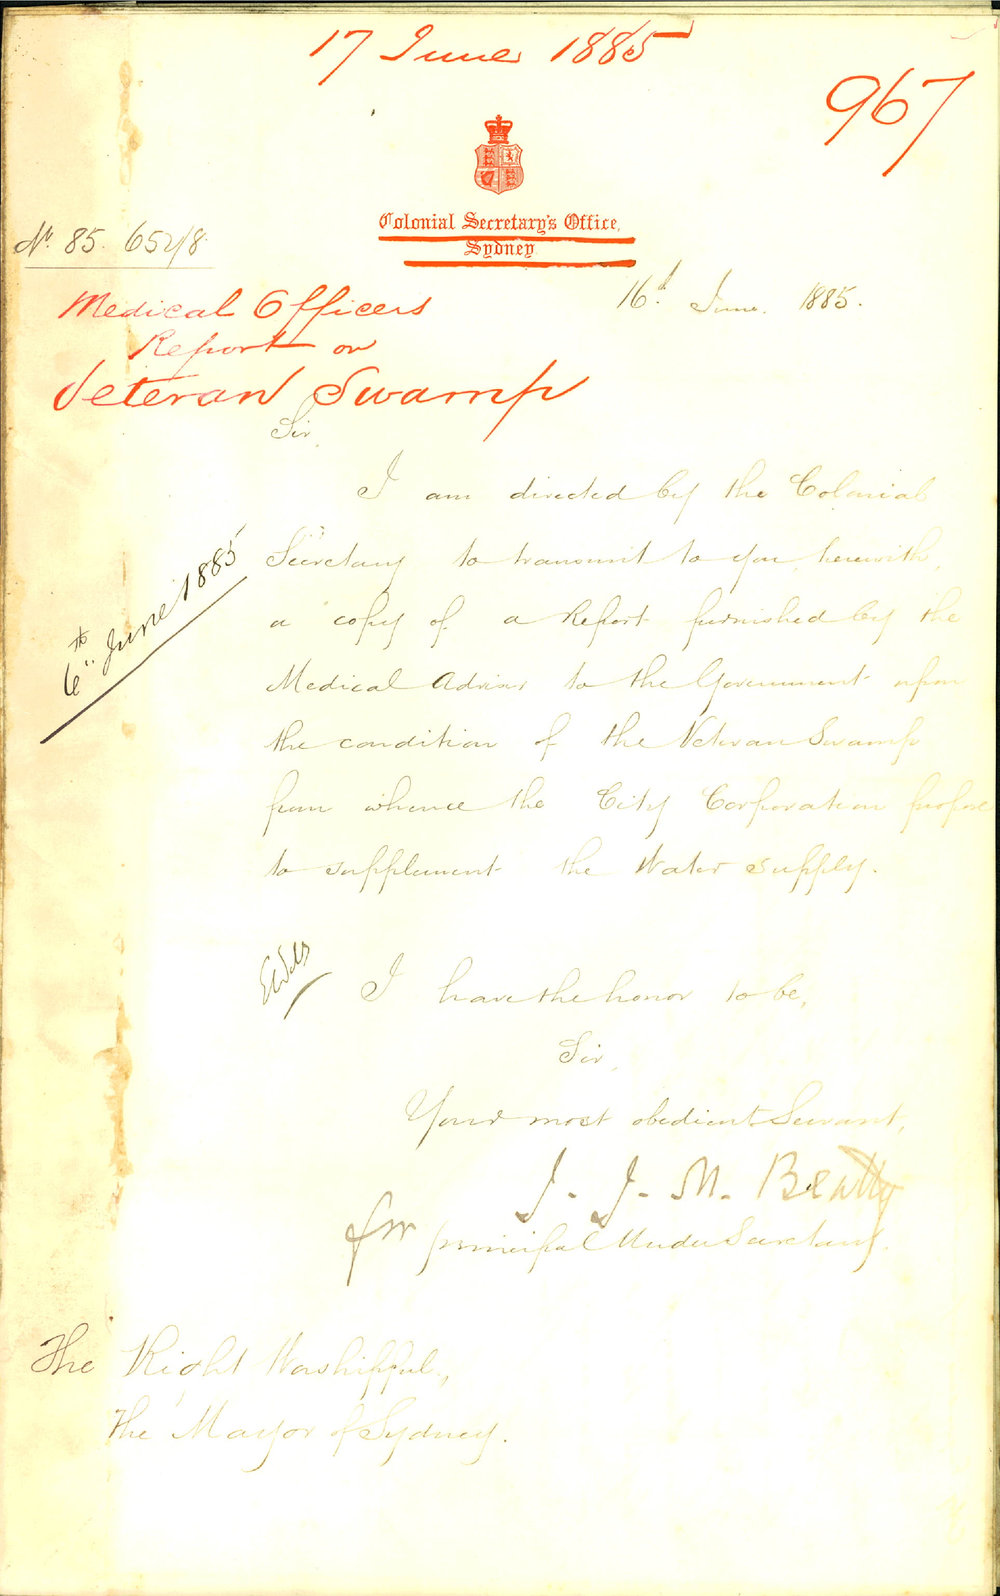 17 June 1885
967
Colonial Secretary's Office,
Sydney
No. 85. 6548
16th June. 1885.
Medical Officers
Report on
Veteran Swamp
Sir,
I am directed by the Colonial
Secretary to transmit to you, herewith,
6th June 1885
a copy of a Report furnished by the
Medical Adviser to the Government upon
the condition of the Veteran Swamp
from whence the City Corporation propose
to supplement the Water Supply.
I have the honor to be,
Sir,
Your most obedient Servant,
J. J. M. Beatty
for Principal Under Secretary.
The Right Worshipful,
The Mayor of Sydney.